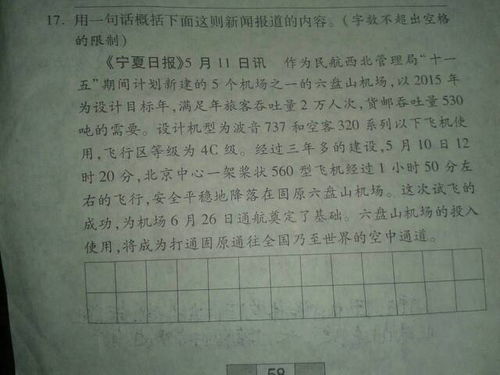 17. 用一句话概括下面这则新闻报道的内容。(字数不超出空格
的限制)
《宁夏日报》5月11日讯 作为民航西北管理局“十一
五”期间计划新建的5个机场之一的六盘山机场,以2015年
为设计目标年,满足年旅客吞吐量2万人次,货邮吞吐量530
吨的需要。设计机型为波音737和空客320系列以下飞机使
用,飞行区等级为4C级。经过三年多的建设,5月10日12
时20分,北京中心一架桨状560型飞机经过1小时50分左
右的飞行,安全平稳地降落在固原六盘山机场。这次试飞的
成功,为机场6月26日通航奠定了基础。六盘山机场的投入
使用,将成为打通固原通往全国乃至世界的空中通道。
58